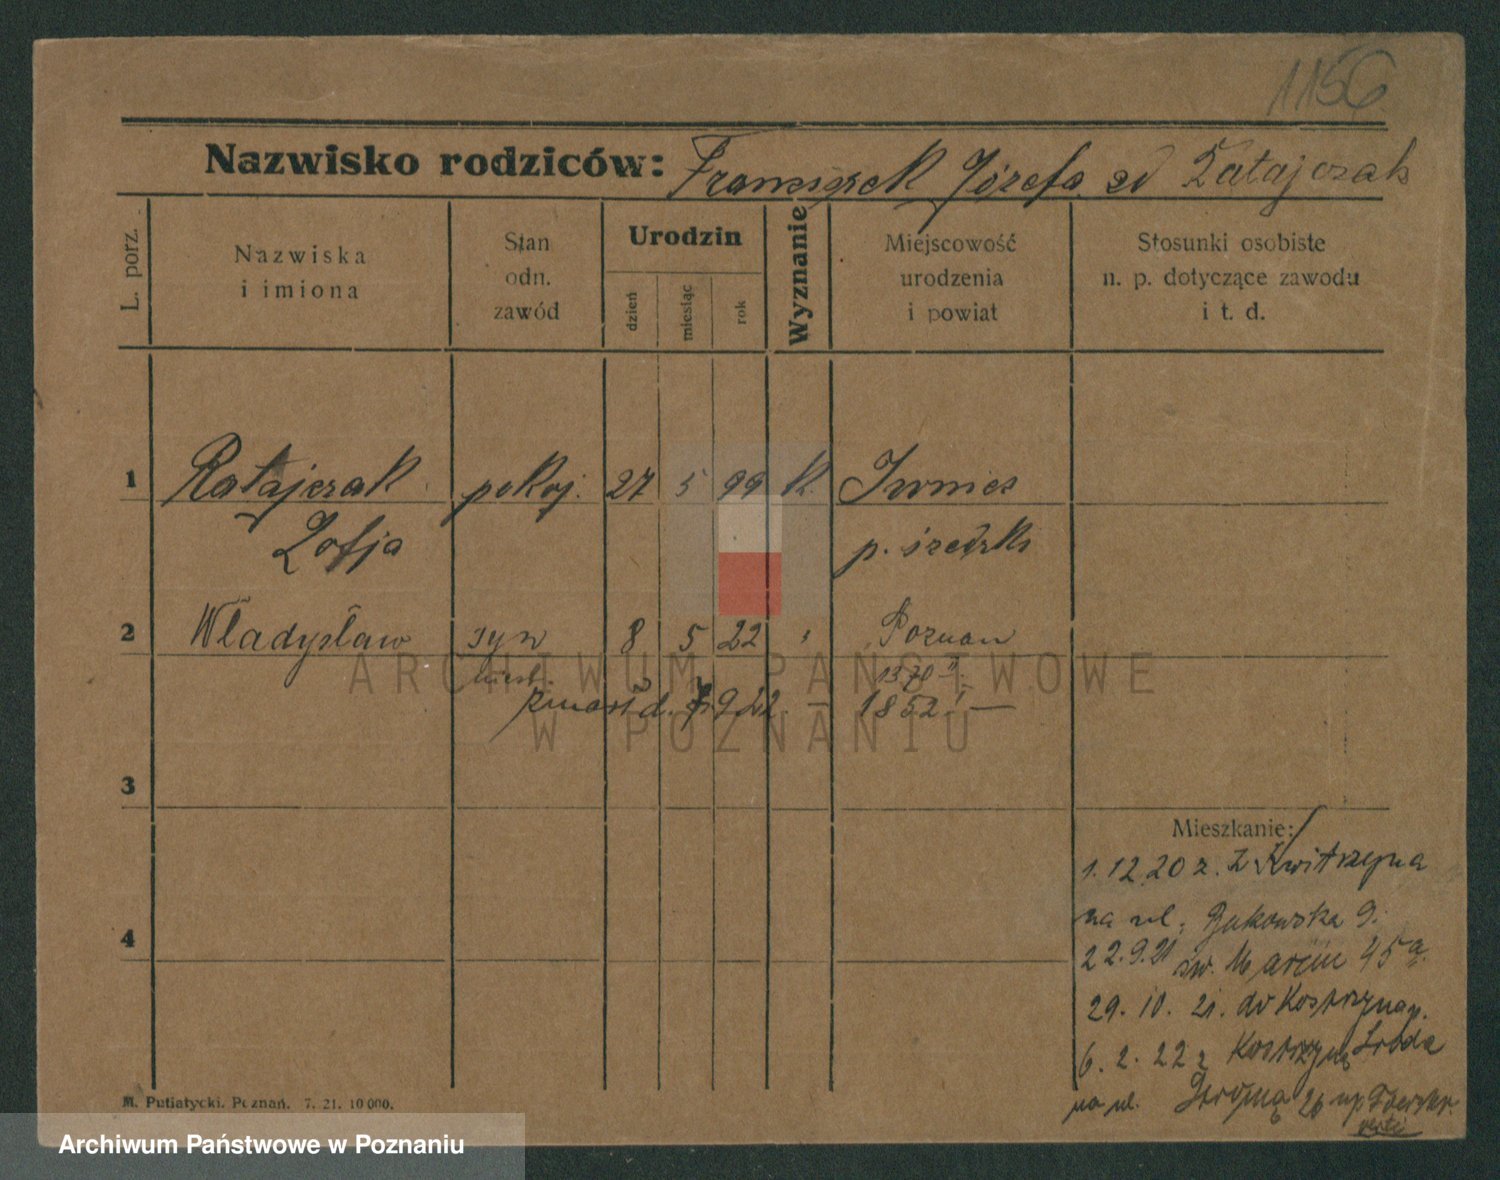 1156
Nazwisko rodziców: Franciszek Józefa Ratajczak
L. porz.
Nazwiska
i imiona
Stan
odn.
zawód
Urodzin
dzień
miesiąc
rok
Wyznanie
Miejscowość
urodzenia
i powiat
Stosunki osobiste
n. p. dotyczące zawodu
i t. d.
1 Ratajczak pokoj. 27 5 99 k. Iwno
Zofja p. średzki
2 Władysław syn 8 5 22 Poznan
zmarł d. 922. — 1852 I —
3
4
Mieszkanie:
1. 12 20 z.
na ul. Bukowska 9.
22.9.21 św. Marcin 45a.
29. 10. 21. do Kostrzyna p.
6. 2. 22 z Kostrzyna Środa
na ul. 26
M. Putiatycki. Poznań. 7. 21. 10 000.
ARCHIWUM PAŃSTWOWE
W POZNANIU
Archiwum Państwowe w Poznaniu